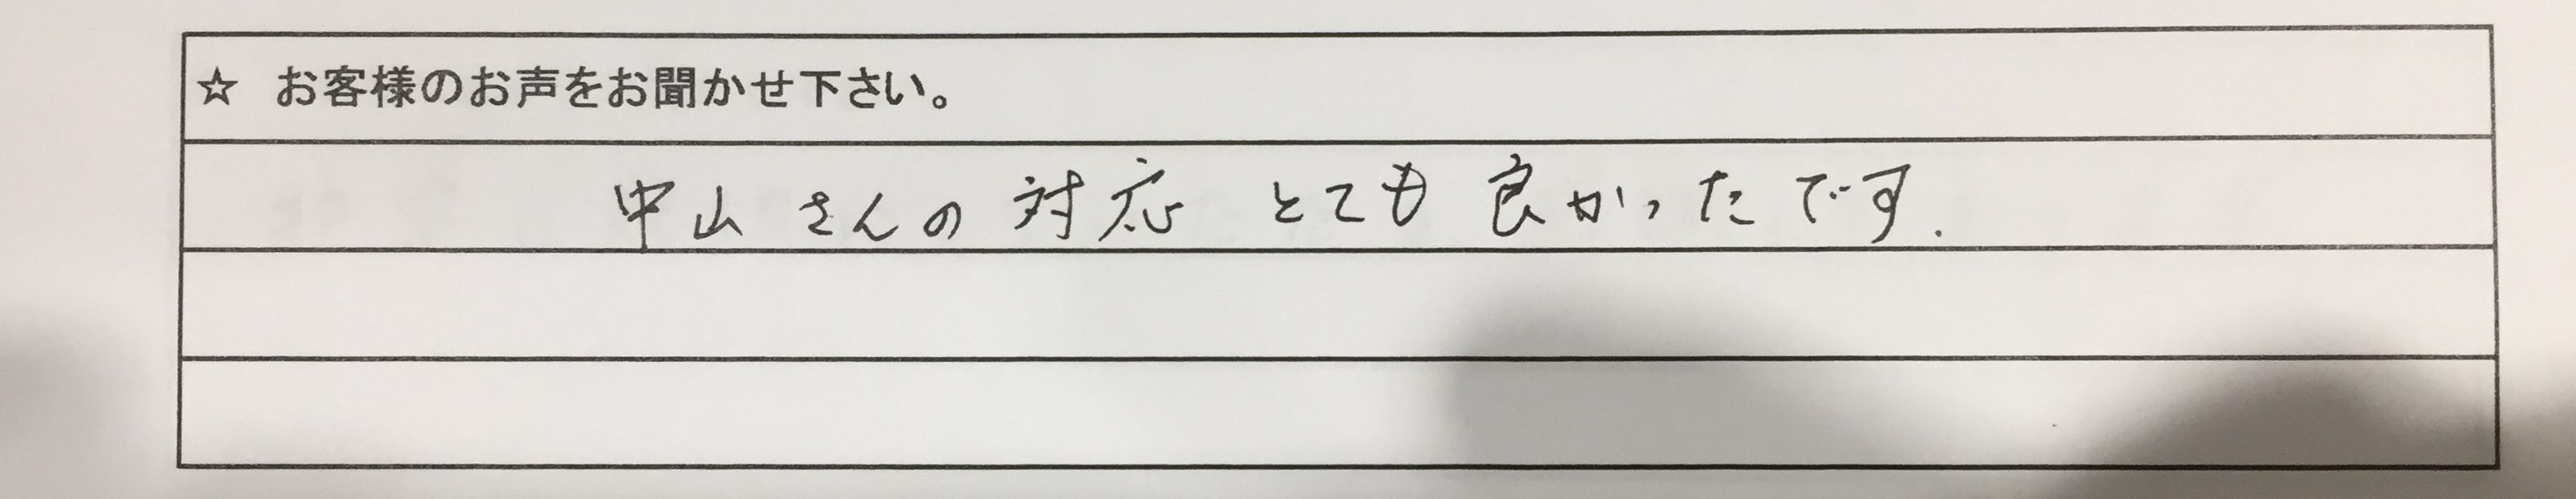 ☆ お客様のお声をお聞かせ下さい。
中山さんの対応とても良かったです.